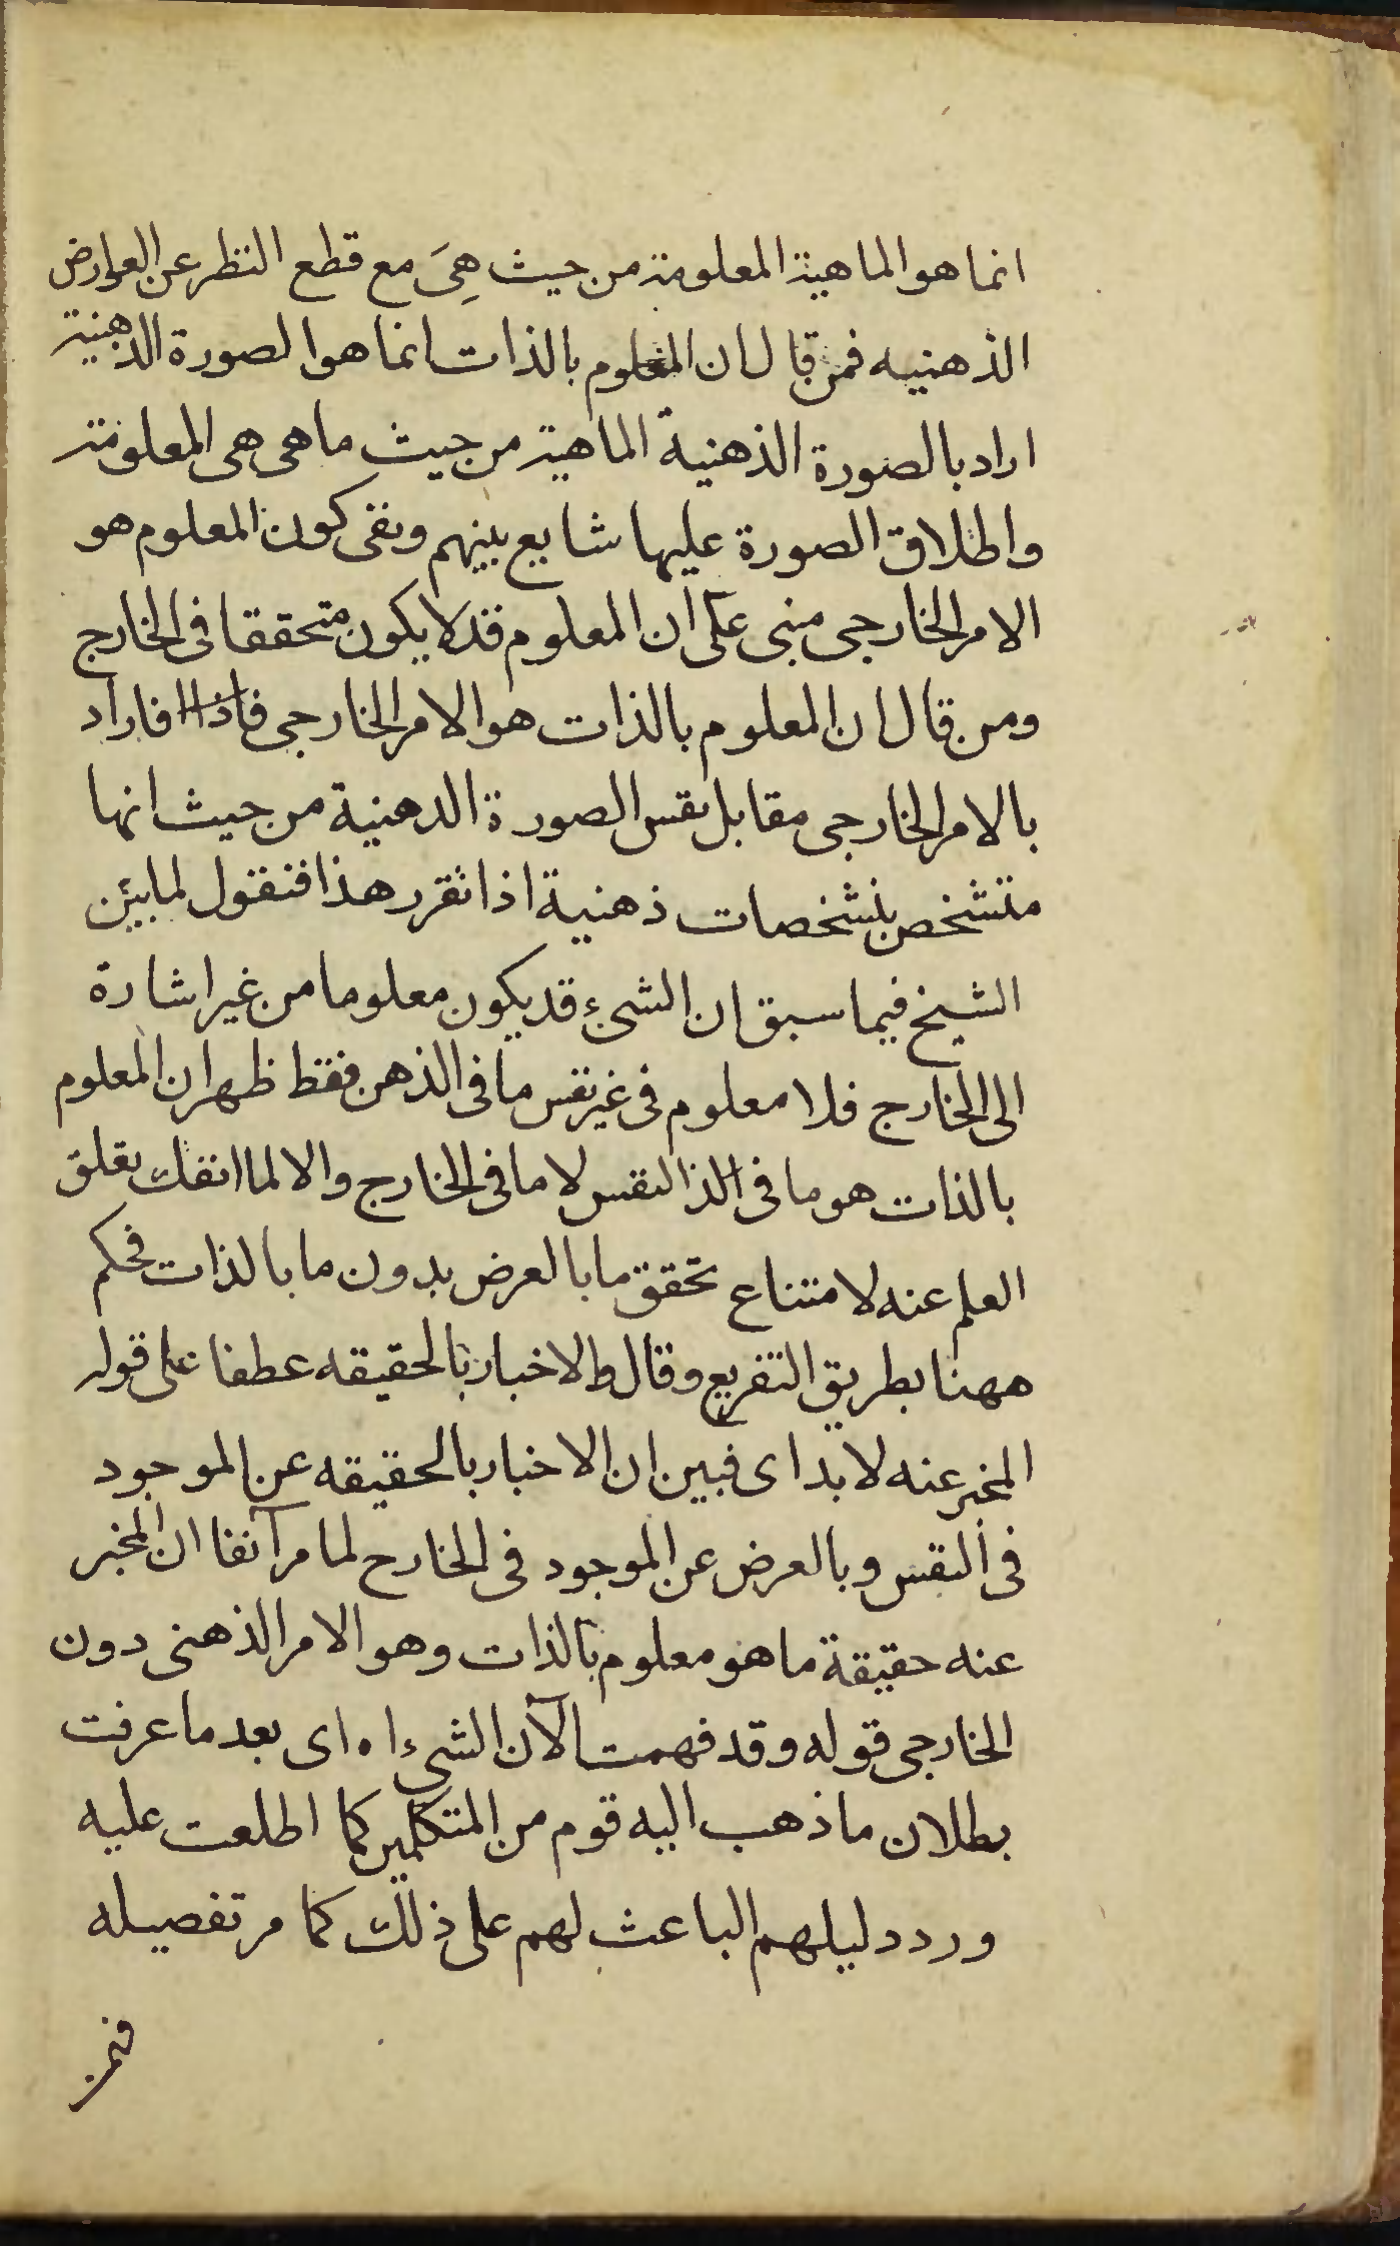 انما هو الماهية المعلومة من حيث هِىَ مع قطع النظر عن العوارض
الذهنيه فمن قال ان المعلوم بالذات انما هو الصورة الذهنية
اراد بالصورة الذهنية الماهية من حيث ما هى هى المعلومة
واطلاق الصورة عليها شايع بينهم ونفى كون المعلوم هو
الامر الخارجى مبنى على ان المعلوم قد لا يكون متحققا فى الخارج
ومن قال ان المعلوم بالذات هو الامر الخارجى فاراد
بالامر الخارجى مقابل نفس الصورة الدهنية من حيث انها
متشخص بتشخصات ذهنية اذا تقرر هذا فنقول لما بيّن
الشيخ فيما سبق ان الشىء قد يكون معلوما من غير اشارة
الى الخارج فلا معلوم فى غير نفس ما فى الذهن فقط ظهر ان المعلوم
بالذات هو ما فى النفس لا ما فى الخارج والا لما انفك تعلق
العلم عنه لامتناع تحقق ما بالعرض بدون ما بالذات فحكم
ههنا بطريق التفريع وقال والاخبار بالحقيقه عطفا على قوله
المخبر عنه لا بد اى فبين ان الاخبار بالحقيقه عن الموجود
فى النفس وبالعرض عن الموجود فى الخارح لما مر آنفا ان المخبر
عنه حقيقة ما هو معلوم بالذات وهو الامر الذهنى دون
الخارجى قوله وقد فهمت الآن الشىء اه اى بعد ما عرفت
بطلان ما ذهب اليه قوم من المتكلمين كما اطلعت عليه
ورد دليلهم الباعث لهم على ذلك كما مر تفصيله
فمن